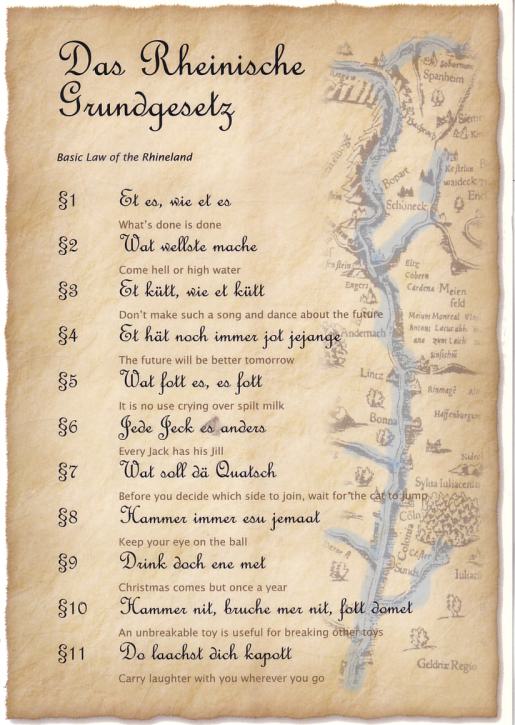 Das Rheinische
Grundgesetz
Basic Law of the Rhineland
§1 Et es, wie et es
What's done is done
§2 Wat wellste mache
Come hell or high water
§3 Et kütt, wie et kütt
Don't make such a song and dance about the future
§4 Et hät noch immer jot jejange
The future will be better tomorrow
§5 Wat fott es, es fott
It is no use crying over spilt milk
§6 Jede Jeck es anders
Every Jack has his Jill
§7 Wat soll dä Quatsch
Before you decide which side to join, wait for the cat to jump
§8 Hammer immer esu jemaat
Keep your eye on the ball
§9 Drink doch ene met
Christmas comes but once a year
§10 Hammer nit, bruche mer nit, fott domet
An unbreakable toy is useful for breaking other toys
§11 Do laachst dich kapott
Carry laughter with you wherever you go
Spanheim
Bopart
Schöneck
Engers
Meien
feld
Andernach
Lintz
Bonna
Cöln
Geldriæ Regio